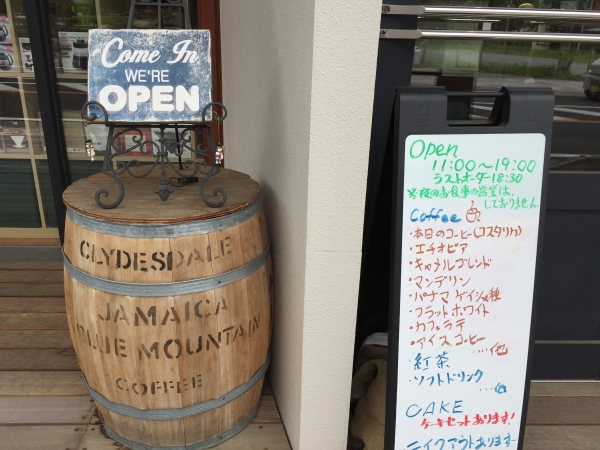 Come In
WE'RE
OPEN
CLYDESDALE
JAMAICA
BLUE MOUNTAIN
COFFEE
Open
11:00〜19:00
ラストオーダー18:30
※夜のお食事の営業は、
しておりません
Coffee
・本日のコーヒー(コスタリカ)
・エチオピア
・キャメルブレンド
・マンデリン
・パナマ ゲイシャ種
・フラットホワイト
・カフェラテ
・アイスコーヒー
・・・・他
・紅茶
・ソフトドリンク
・・・・他
CAKE
ケーキセットあります!
テイクアウトあります